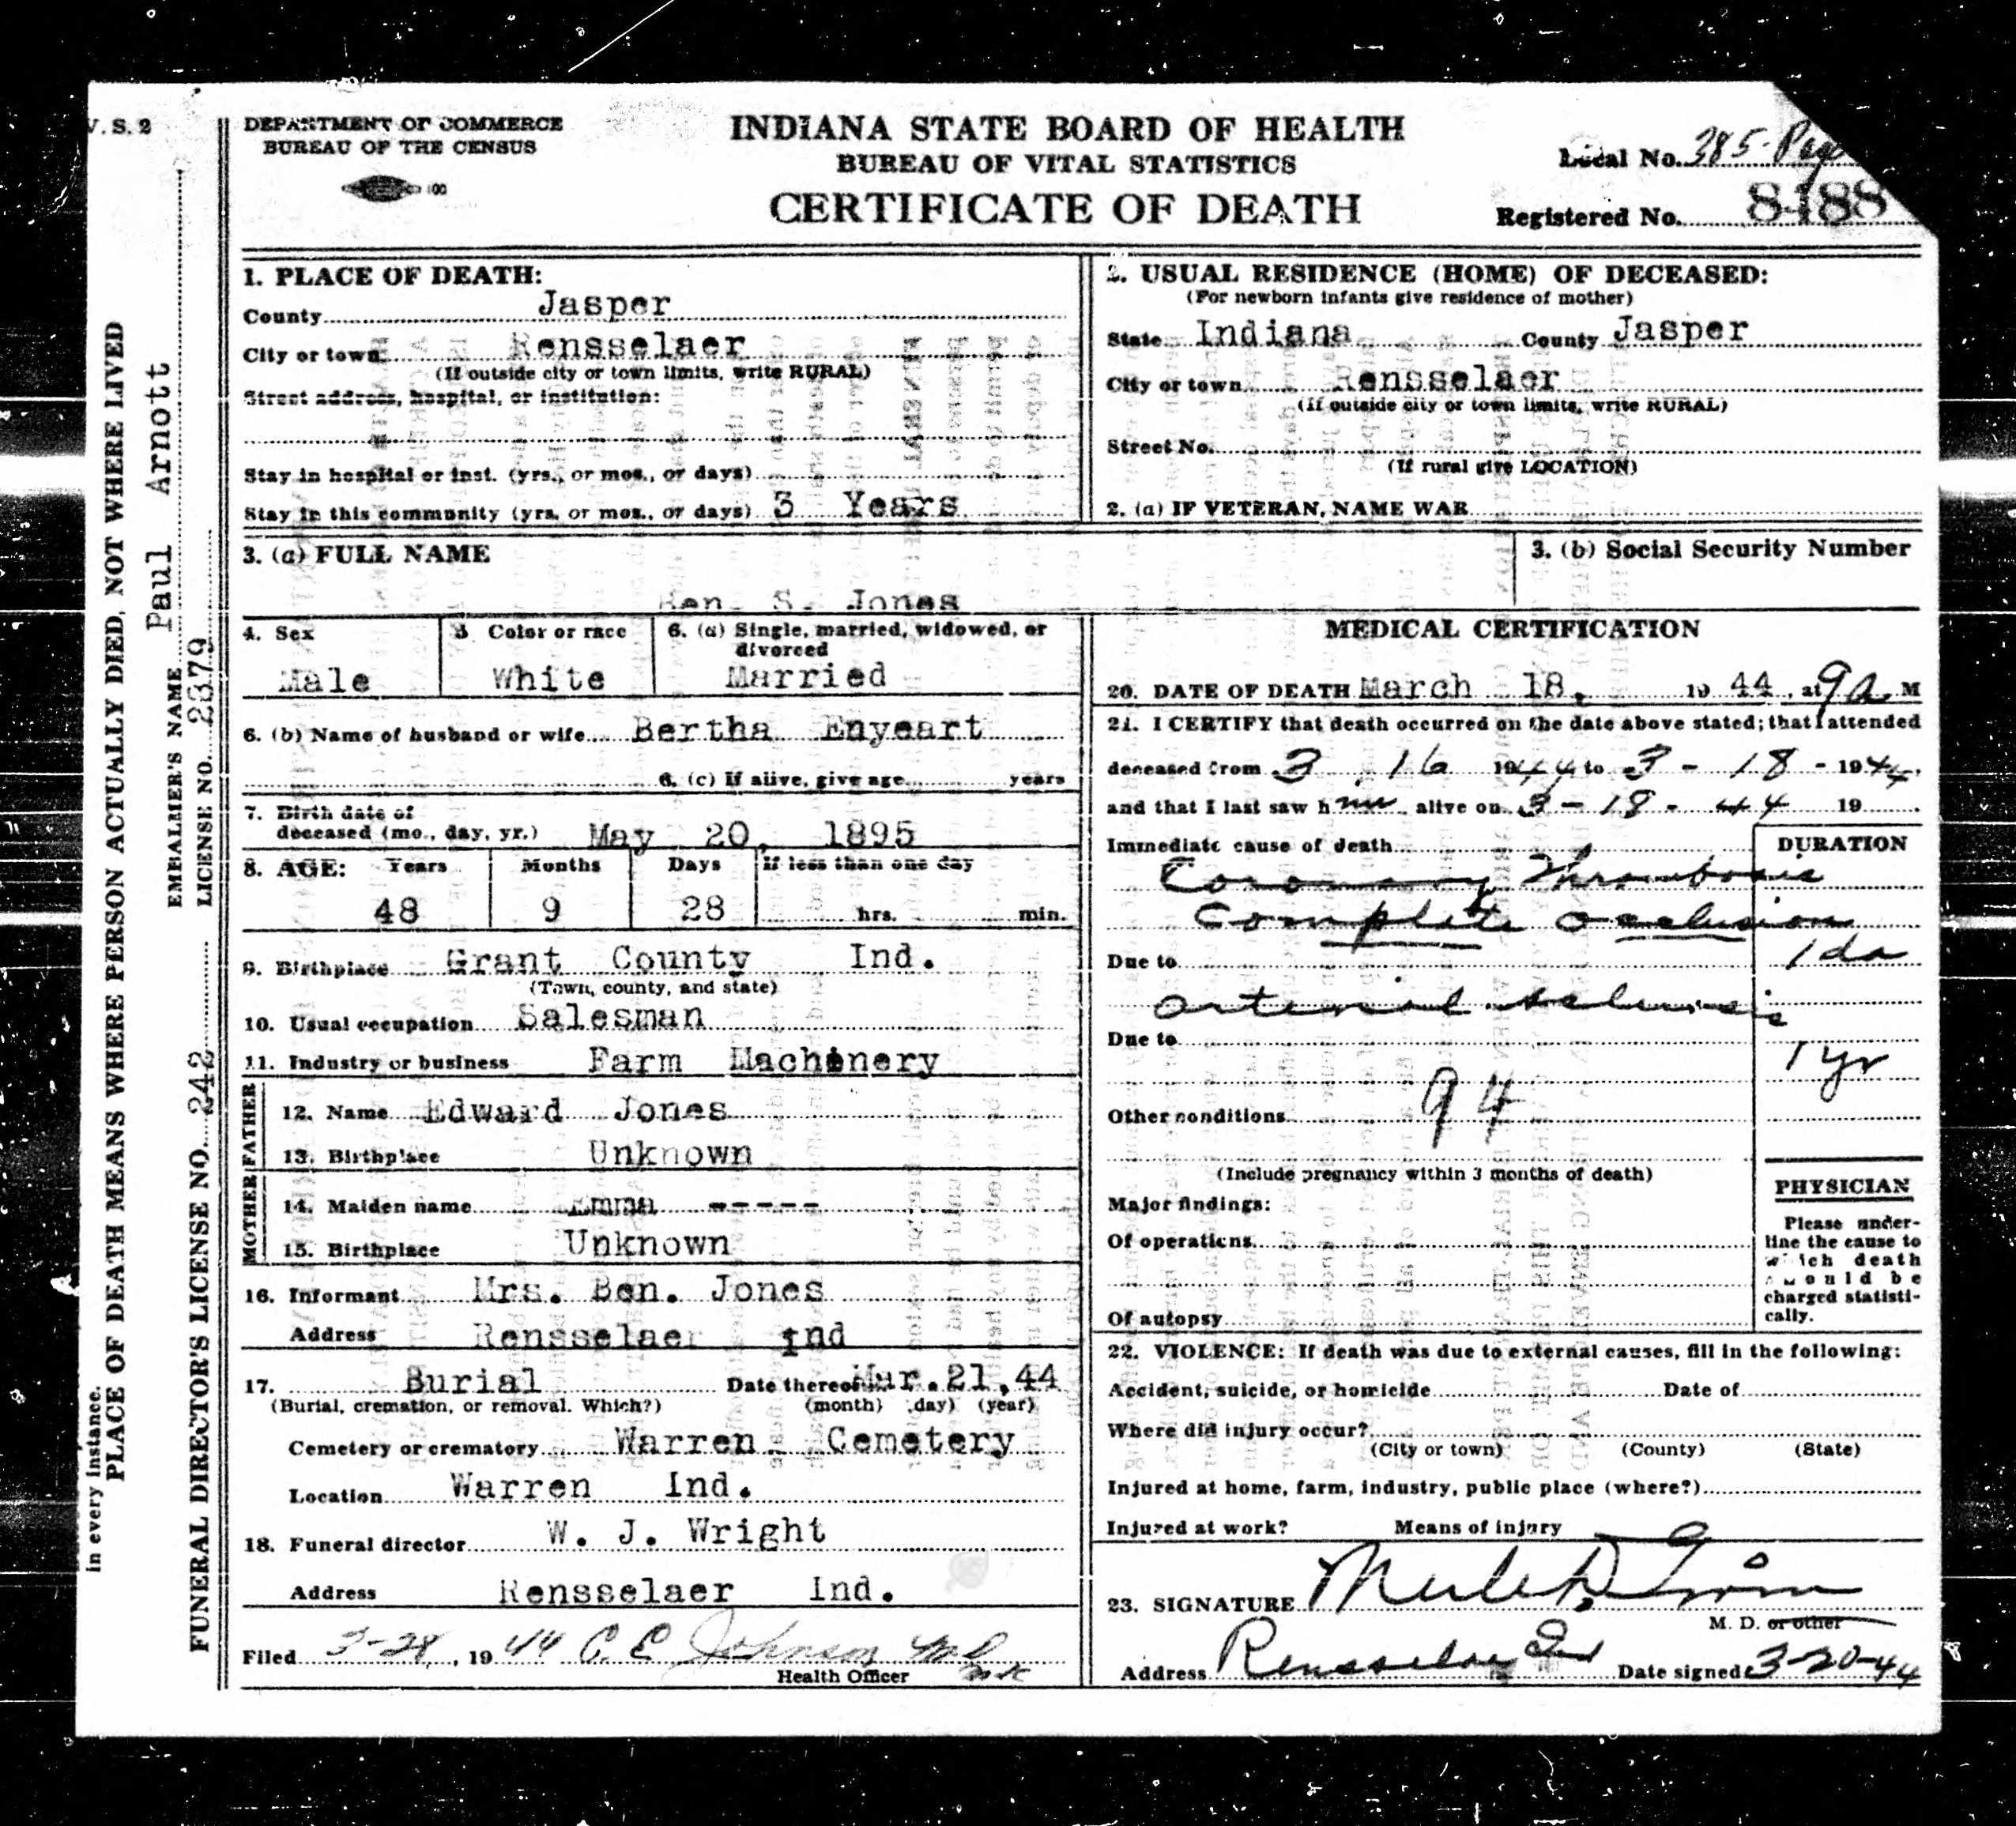 V. S. 2
DEPARTMENT OF COMMERCE
BUREAU OF THE CENSUS
INDIANA STATE BOARD OF HEALTH
BUREAU OF VITAL STATISTICS
CERTIFICATE OF DEATH
Local No. 385-
Registered No. 8488
in every instance.
PLACE OF DEATH MEANS WHERE PERSON ACTUALLY DIED, NOT WHERE LIVED
EMBALMER'S NAME Paul Arnott
FUNERAL DIRECTOR'S LICENSE NO. 242 LICENSE NO. 2379
1. PLACE OF DEATH:
County Jasper
City or town Rensselaer
(If outside city or town limits, write RURAL)
Street address, hospital, or institution:
Stay in hospital or inst. (yrs., or mos., or days)
Stay in this community (yrs. or mos., or days) 3 Years
2. USUAL RESIDENCE (HOME) OF DECEASED:
(For newborn infants give residence of mother)
State Indiana County Jasper
City or town Rensselaer
(If outside city or town limits, write RURAL)
Street No.
(If rural give LOCATION)
2. (a) IF VETERAN, NAME WAR
3. (a) FULL NAME
Ben S. Jones
3. (b) Social Security Number
4. Sex
Male
5 Color or race
White
6. (a) Single, married, widowed, or
divorced
Married
6. (b) Name of husband or wife Bertha Enyeart
6. (c) If alive, give age years
7. Birth date of
deceased (mo., day, yr.) May 20, 1895
8. AGE: Years Months Days If less than one day
48 9 28 hrs. min.
9. Birthplace Grant County Ind.
(Town, county, and state)
10. Usual occupation Salesman
11. Industry or business Farm Machinery
FATHER
12. Name Edward Jones
13. Birthplace Unknown
MOTHER
14. Maiden name Emma -----
15. Birthplace Unknown
16. Informant Mrs. Ben. Jones
Address Rensselaer Ind
17. Burial Date thereof Mar. 21, 44
(Burial, cremation, or removal. Which?) (month) (day) (year)
Cemetery or crematory Warren Cemetery
Location Warren Ind.
18. Funeral director W. J. Wright
Address Rensselaer Ind.
Filed 3-28, 1944 C. E. Johnson MD
Health Officer
MEDICAL CERTIFICATION
20. DATE OF DEATH March 18, 1944, at 9a M
21. I CERTIFY that death occurred on the date above stated; that I attended
deceased from 3 16 1944 to 3 - 18 - 1944,
and that I last saw him alive on 3 - 18 - 44 19 .
Immediate cause of death
DURATION
Coronary Thrombosis
Complete Occlusion
Due to 1 da
arterial
Due to
1 yr
94
Other conditions
(Include pregnancy within 3 months of death)
Major findings:
Of operations
Of autopsy
PHYSICIAN
Please under-
line the cause to
which death
should be
charged statisti-
cally.
22. VIOLENCE: If death was due to external causes, fill in the following:
Accident, suicide, or homicide Date of
Where did injury occur?
(City or town) (County) (State)
Injured at home, farm, industry, public place (where?)
Injured at work? Means of injury
23. SIGNATURE
M. D. or other
Address Rensselaer Ind Date signed 3-20-44